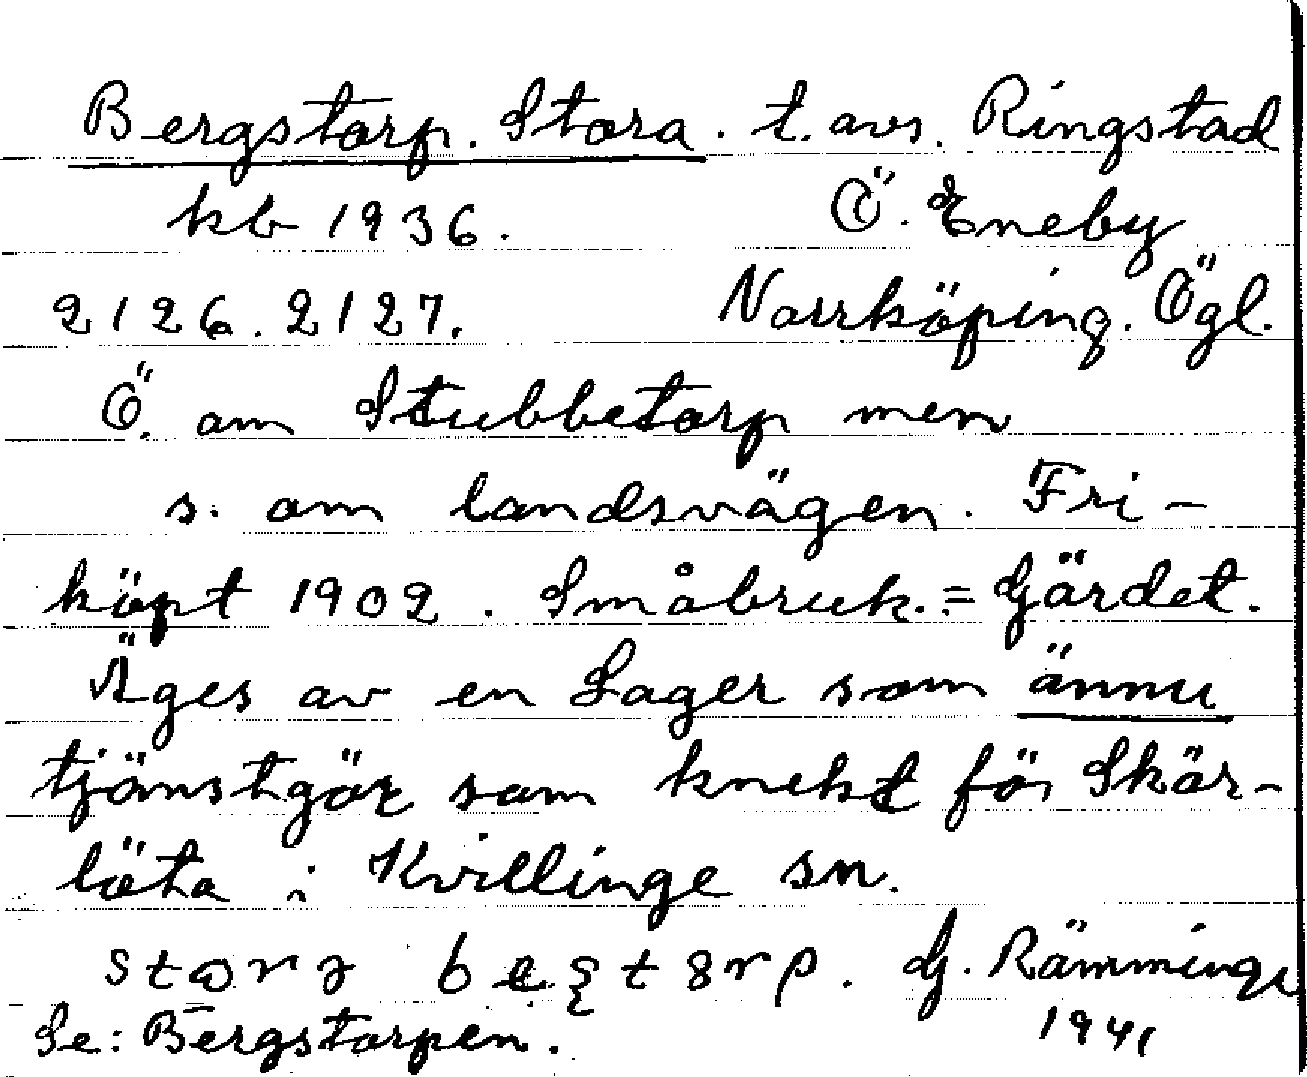 Bergstorp. Stora. t. avs. Ringstad
kb 1936. Ö. Eneby
2126. 2127. Norrköping. Ögl.
Ö. om Stubbetorp men
s. om landsvägen. Fri-
köpt 1902. Småbruk. = Gärdet.
Äges av en Lager som ännu
tjänstgör som knekt för Skär-
löta i Kvillinge sn.
G. Rämminge
Se: Bergstorpen. 1941